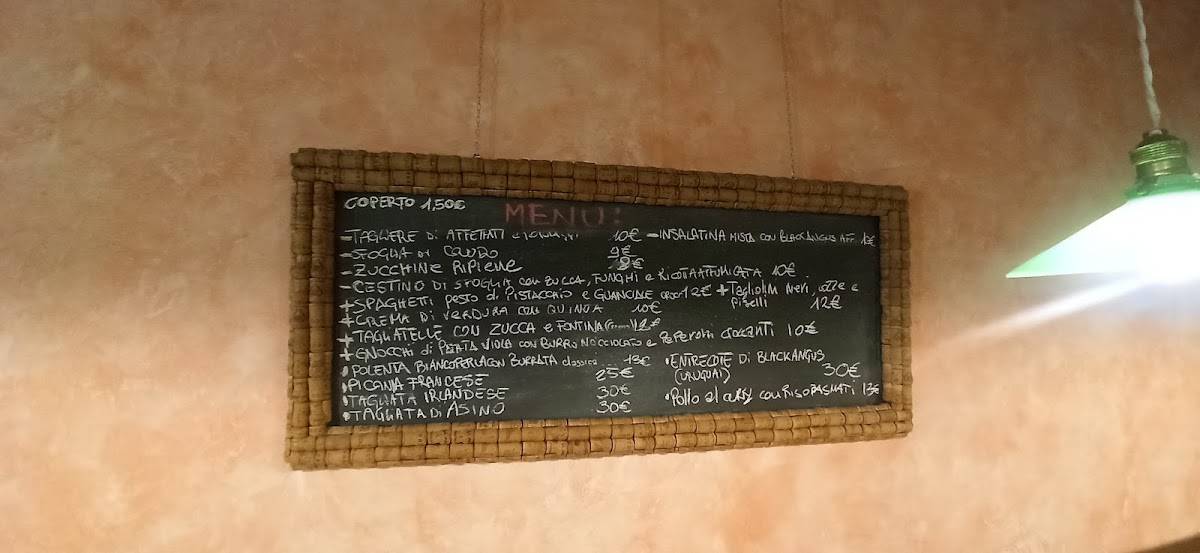 COPERTO 1,50€
MENU:
- TAGLIERE DI AFFETTATI e 10€
- SFOGLIA DI CRUDO 9€
- ZUCCHINE RIPIENE 8€
- CESTINO DI SFOGLIA CON ZUCCA, FUNGHI e RICOTTA AFFUMICATA 10€
+ SPAGHETTI pesto di PISTACCHIO e GUANCIALE 12€
+ CREMA DI VERDURA CON QUINOA 10€
+ TAGLIATELLE CON ZUCCA e FONTINA 12€
+ GNOCCHI di PATATA VIOLA CON BURRO NOCCIOLATO e PEPERONI CROCCANTI 10€
• POLENTA BIANCOPERLA CON BURRATA classica 13€
• PICANIA FRANCESE 25€
• TAGLIATA IRLANDESE 30€
• TAGLIATA DI ASINO 30€
- INSALATINA MISTA CON BLACKANGUS AFF. 12€
+ Tagliolini neri, e
piselli 12€
• ENTRECOTE DI BLACKANGUS
(URUGUAI) 30€
• Pollo al curry con RISO BASMATI 13€